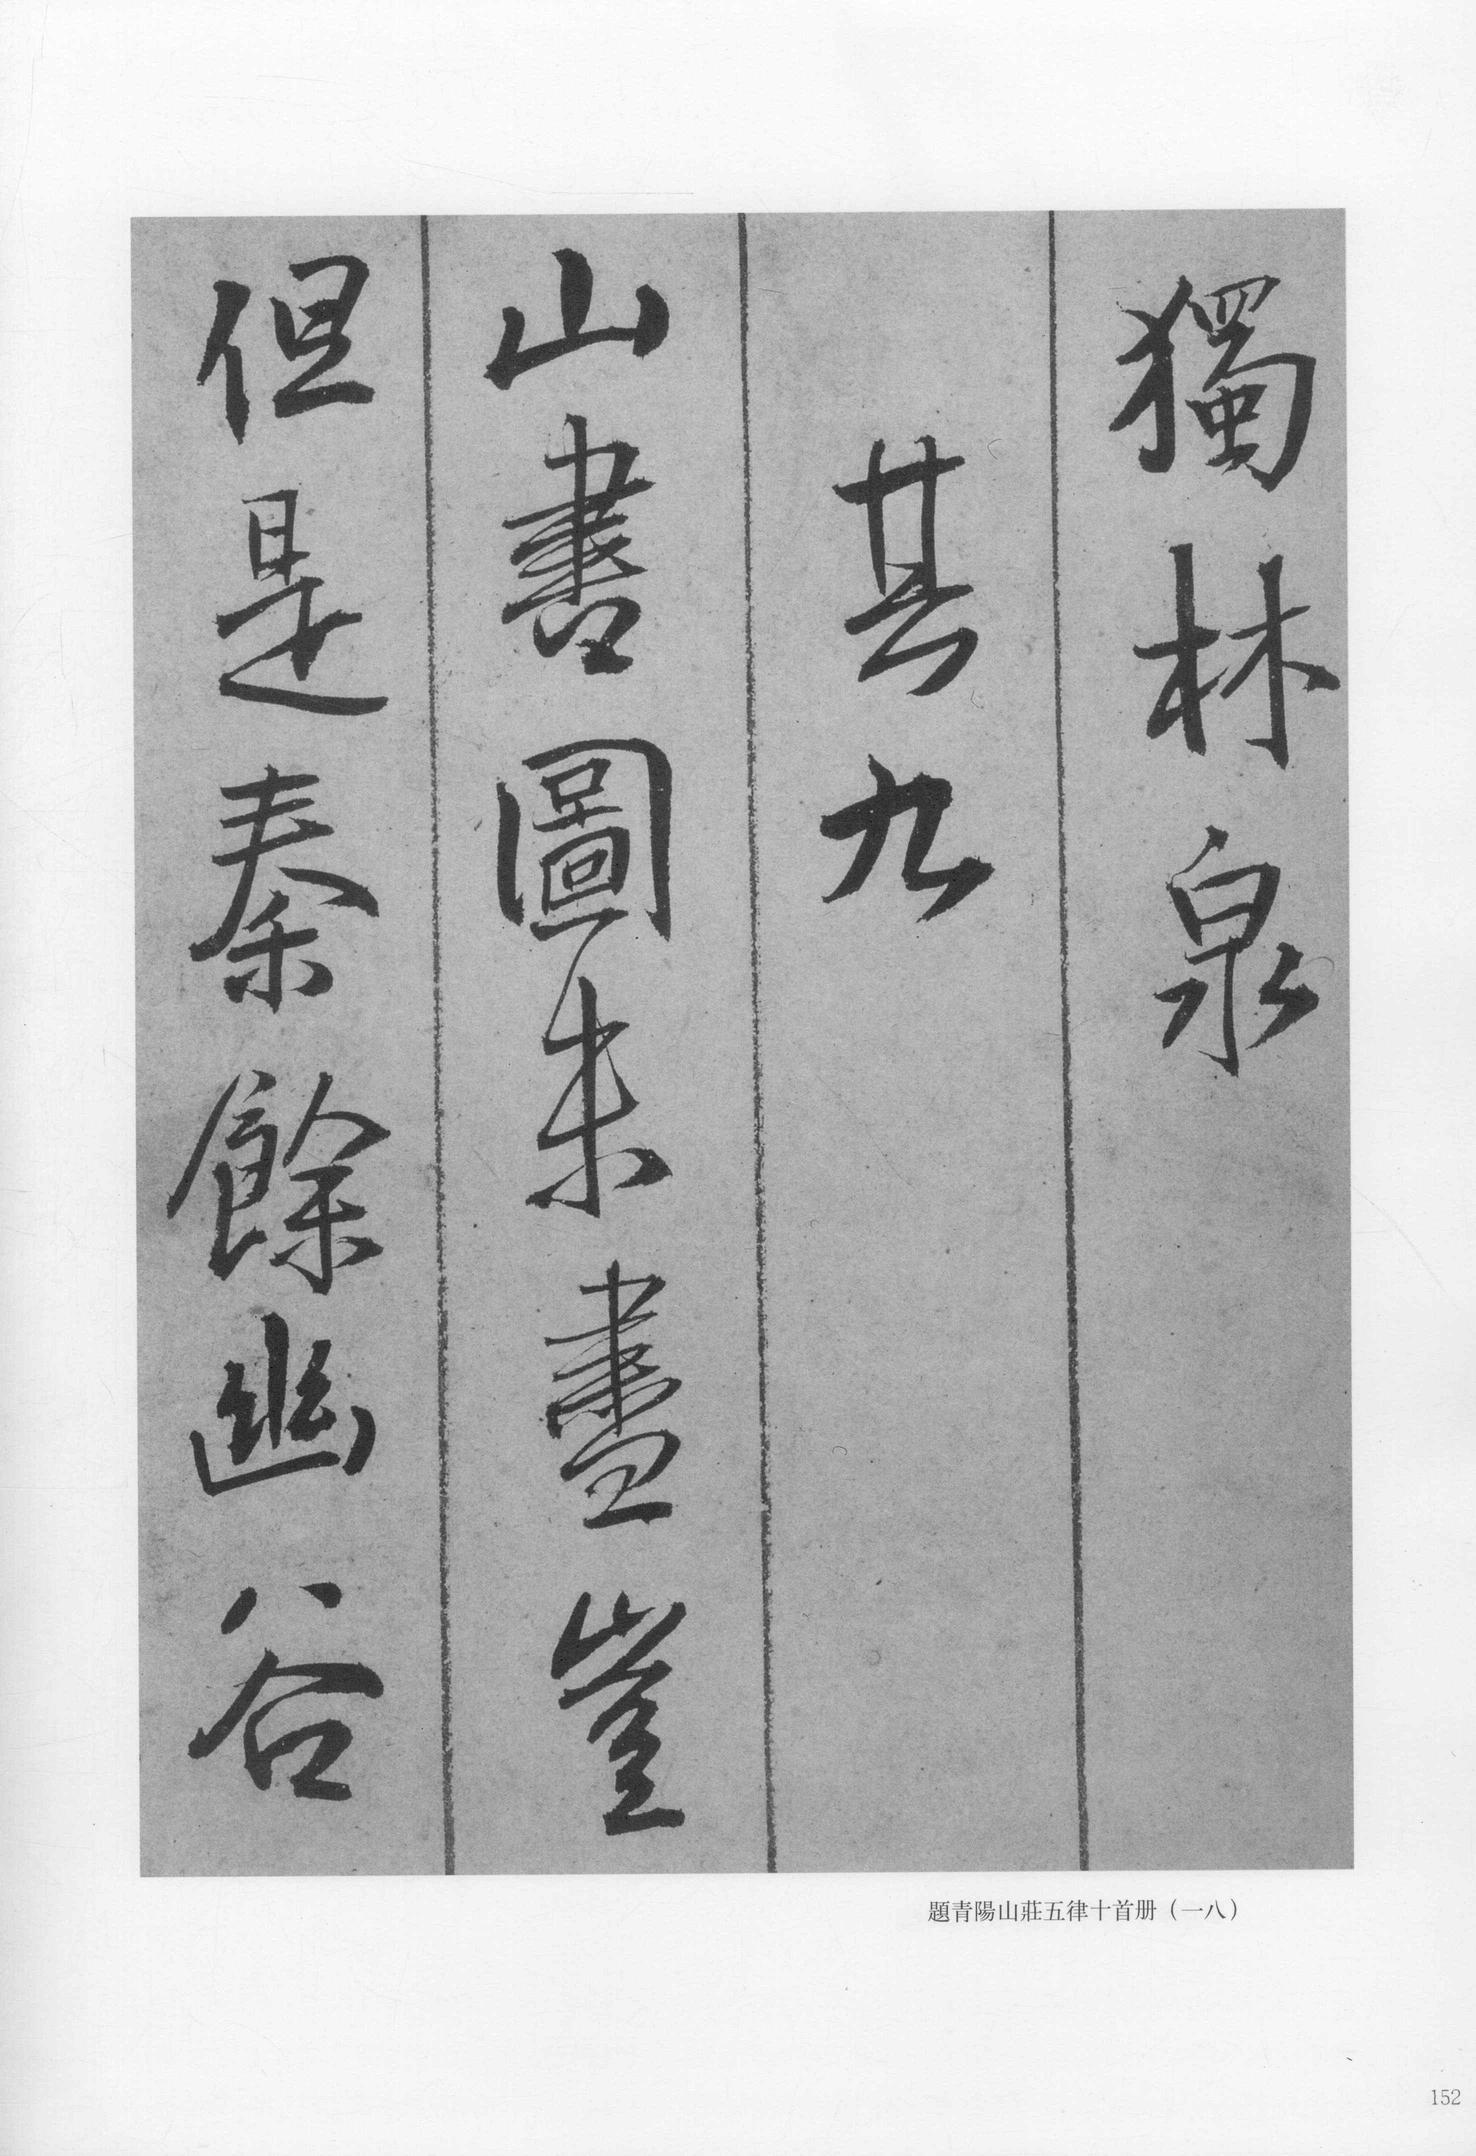 獨林泉
其九
山書圖未盡豈
但是秦餘幽谷
題青陽山莊五律十首册（一八）
152